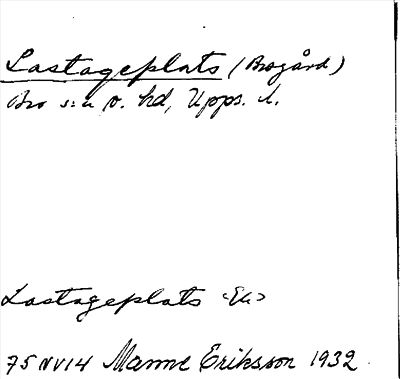 Lastageplats (Brogård)
Bro s:n o. hd, Upps. l.
Lastageplats <Ek>
75 NV14 Manne Eriksson 1932